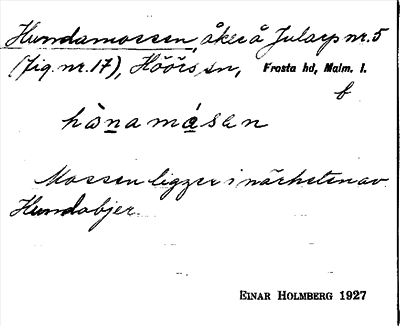 Hundamossen, åker å Jularp nr. 5
(Fig. nr. 17), Höörs sn, Frosta hd, Malm. l.
f
hànamásen
Mossen ligger i närheten av
Hundabjer.
EINAR HOLMBERG 1927